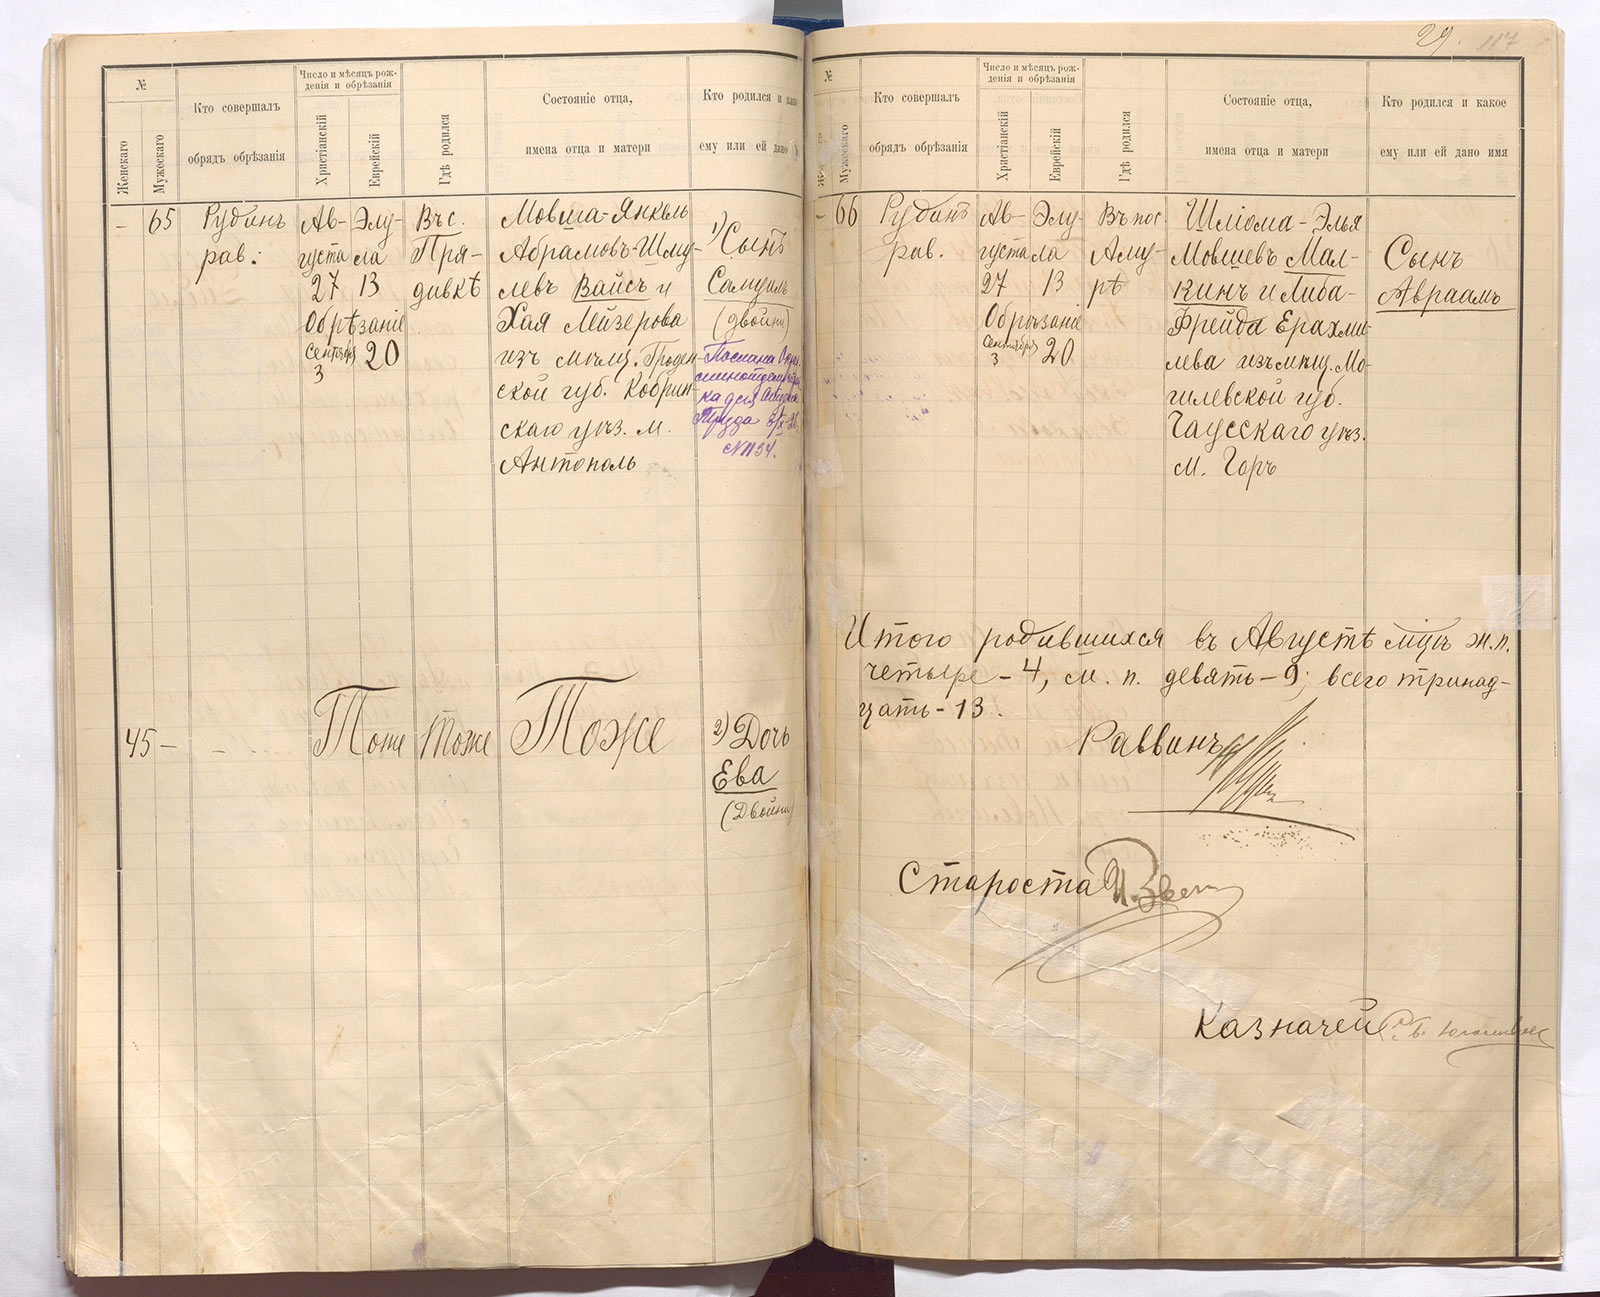 №
Женскаго
Мужескаго
Кто совершалъ
обрядъ обрѣзанія
Число и мѣсяцъ рож-
денія и обрѣзанія
Христіанскій
Еврейскій
Гдѣ родился
Состояніе отца,
имена отца и матери
Кто родился и како
ему или ей дано
–
65
Рудинъ
рав.
Ав-
густа
27
Обрѣзаніе
Сентября
3
Элу-
ла
13
20
Въ с.
Пря-
дивкѣ
Мовша-Янкель
Абрамовъ-Шму-
левъ Вайсъ и
Хая Лейзерова
изъ мѣщ. Гроден-
ской губ. Кобрин-
скаго уѣз. м.
Антополь
1) Сынъ
Самуилъ
(двойни)
Послана
ка для
Труда
№1134.
45
–
–
Тоже
Тоже
Тоже
2) Дочь
Ева
(Двойни)
29. 117
№
Мужескаго
Кто совершалъ
обрядъ обрѣзанія
Число и мѣсяцъ рож-
денія и обрѣзанія
Христіанскій
Еврейскій
Гдѣ родился
Состояніе отца,
имена отца и матери
Кто родился и какое
ему или ей дано имя
–
66
Рудинъ
рав.
Ав-
густа
27
Обрѣзаніе
Сентября
3
Элу-
ла
13
20
Въ пос.
Аму-
рѣ
Шліома-Элья
Мовшевъ Мал-
кинъ и Либа-
Фрейда Ерахми-
лева изъ мѣщ. Мо-
гилевской губ.
Чаусскаго уѣз.
м. Горъ
Сынъ
Авраамъ
Итого родившихся въ Августѣ мцѣ ж.п.
четыре-4, м. п. девять-9; всего тринад-
цать-13.
Раввинъ
Староста
Казначей